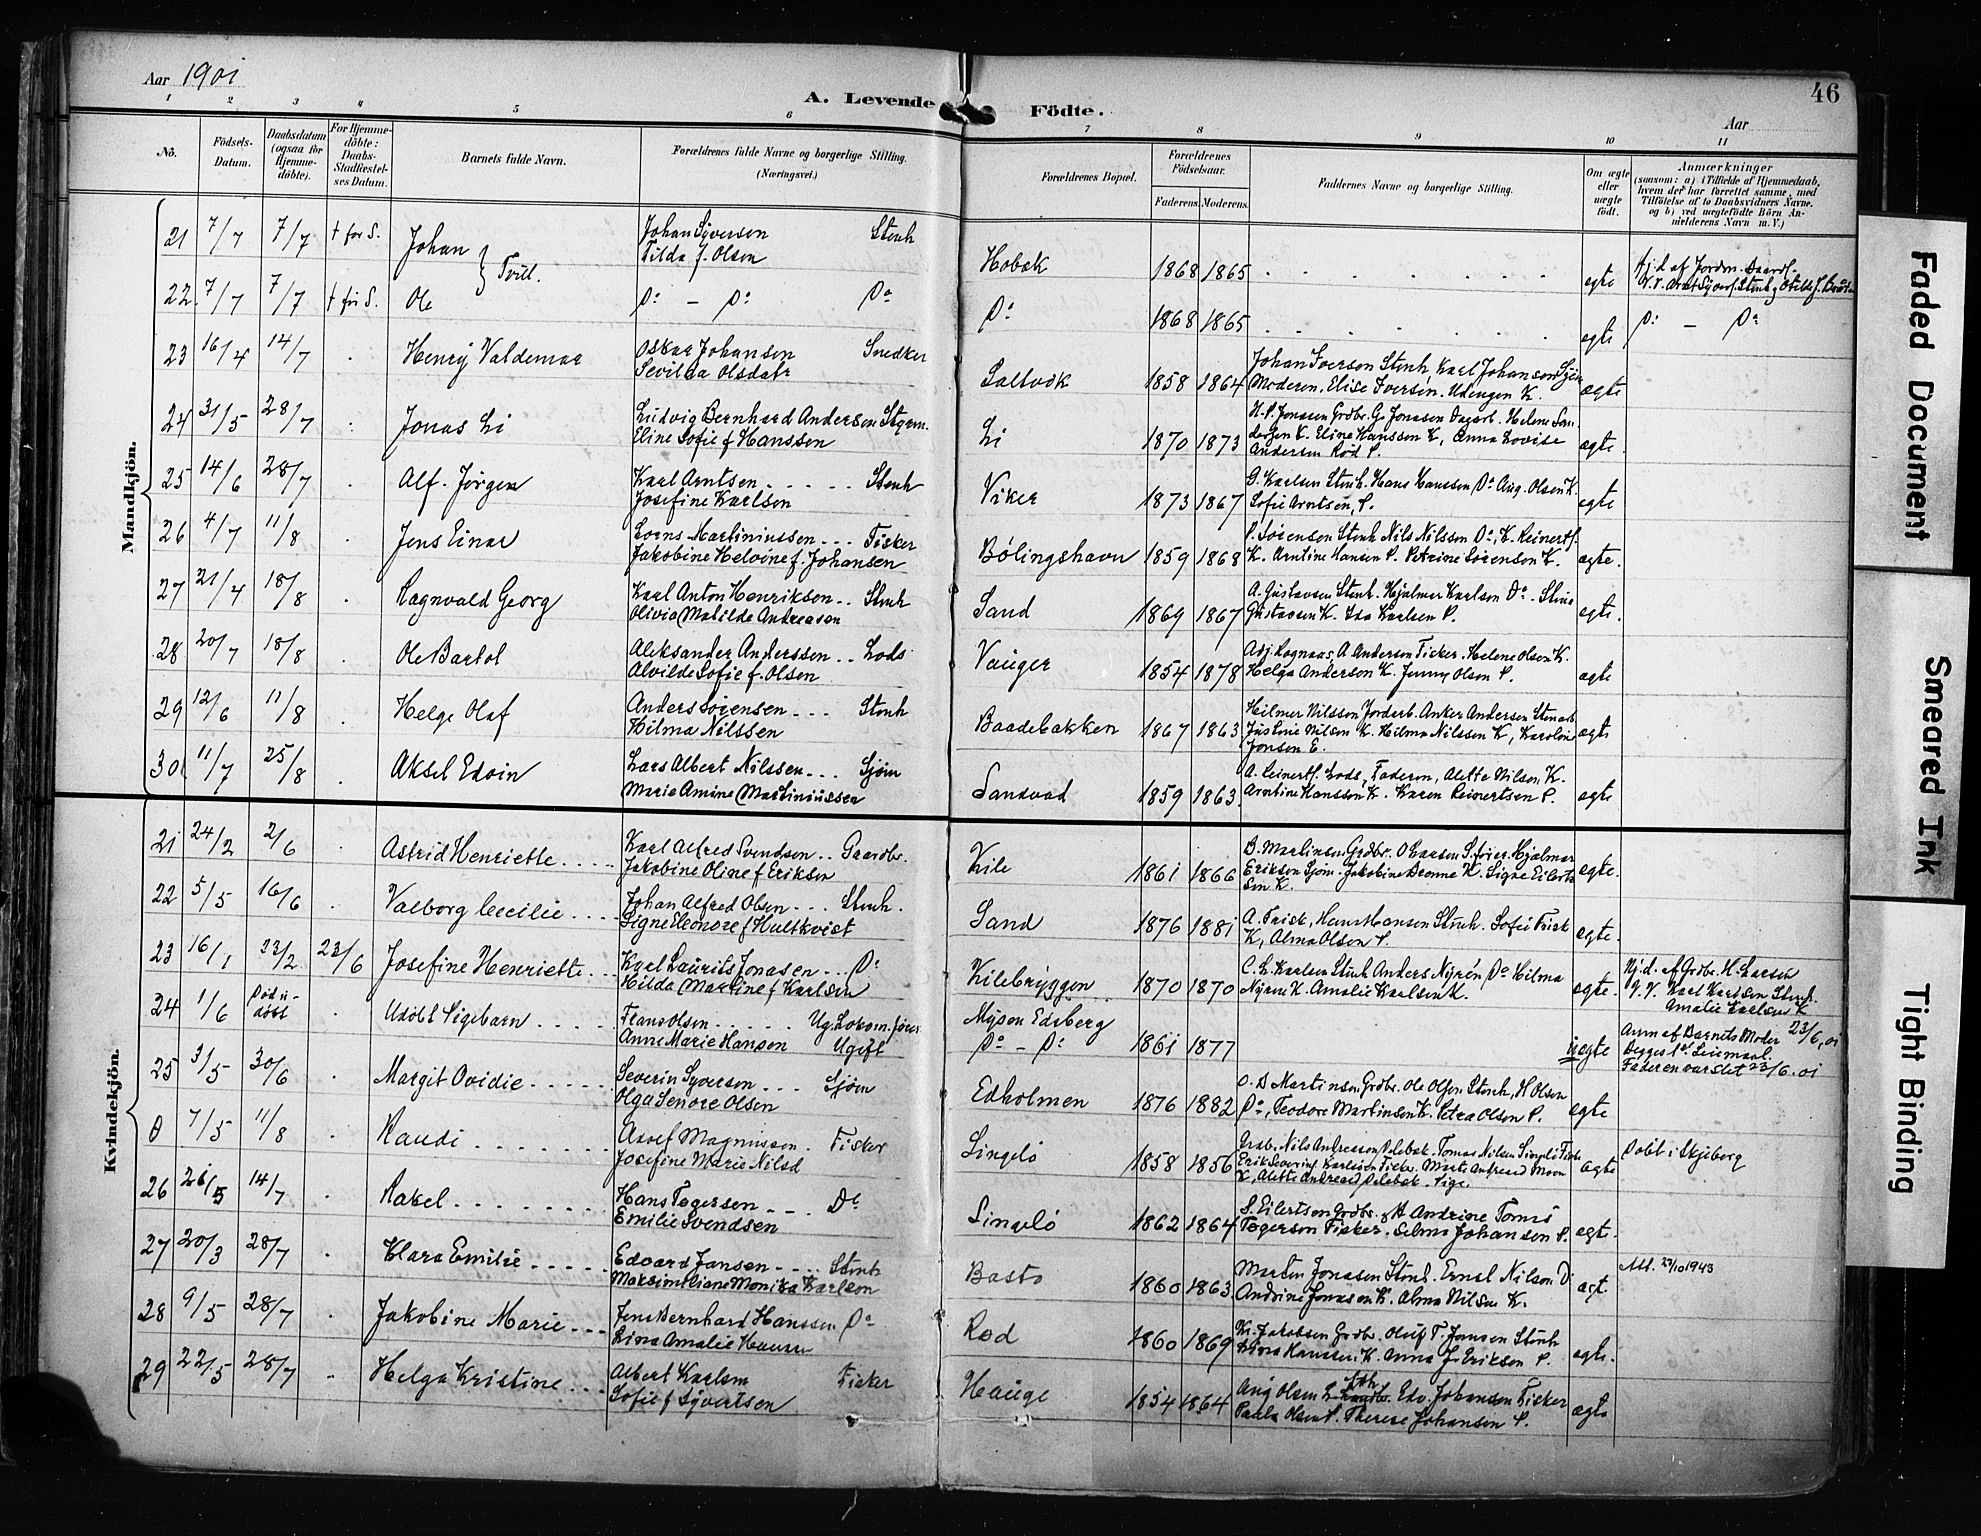 Aar 1901
A. Levende Födte.
46
Aar
1 2 3 4 5 6 7 8 9 10 11
No.
Födsels-Datum.
Daabsdatum (ogsaa for Hjemme-döbte).
For Hjemme-döbte: Daabs-Stadfæstel-ses Datum.
Barnets fulde Navn.
Forældrenes fulde Navne og borgerlige Stilling. (Næringsvei.)
Forældrenes Bopæl.
Forældrenes Födselsaar.
Faderens. Moderens.
Faddernes Navne og borgerlige Stilling.
Om ægte eller uægte födt.
Anmærkninger
(saasom: a) i Tilfælde af Hjemmedaab, hvem der har forrettet samme, med Tilföielse af to Daabsvidners Navne. og b) ved uægtefödte Börn Anmelderens Navn m. V.)
Mandkjön.
21 7/7 7/7 † før S. Johan } Tvill. Johan Syversen Stenh Hobæk 1868 1865 ægte
Tilda f. Olsen
22 7/7 7/7 † før S. Ole Do - Do Do Do 1868 1865 ægte Do - Do
23 16/4 14/7 Henry Valdemar Oskar Johansen Snedker Saltvik 1858 1864 Johan Iversen Stenh, Karl Johansen Sjøm ægte
Sevilda Olsdatr Moderen, Elise Iversen, Udengen K.
24 31/5 28/7 Jonas Li Ludvig Bernhard Andersen Styrm. Li 1870 1873 H. P. Jonassen Grdbr. G. Jonassen Dagarb. Helene San ægte
Eline Sofie f Hanssen dersen K. Eline Hanssen K, Anna Lovise
Andersen Rød P.
25 14/6 28/7 Alf Jørgen Karl Arntsen Stenh Viker 1873 1867 G. Karlsen Stenh. Hans Hanssen Do Aug. Olsen K. ægte
Josefine Karlsen Sofie Arntsen, P.
26 4/7 11/8 Jens Einar Lorns Martiniussen Fisker Bølingshavn 1859 1868 P. Sørensen Stenh Nils Nilssen Do, K. Reinertf. ægte.
Jakobine Helvine f. Johansen K. Arntine Hansen P. Petrine Sørensen K.
27 21/4 18/8 Ragnvald Georg Karl Anton Henriksen Stenh Sand 1869 1867 A. Gustavsen Stenh. Hjalmer Karlsen Do. Stina ægte.
Olivia Matilde Andreasen Gustavsen K. Ida Karlsen P.
28 20/7 18/8 Ole Bartol Aleksander Anderssen Lods Vauger 1854 1878 A. Andersen Fisker. Helene Olsen K. ægte
Alvilde Sofie f. Olsen Helga Andersen K. Jenny Olsen P.
29 12/6 11/8 Helge Olaf Anders Sørensen Stenh Baadebakken 1867 1863 Hilmer Nilssen Jordarb. Anker Andersen Stenarb ægte
Hilma Nilssen Justine Nilsen K. Hilma Nilssen K, Karoline
Jonsen E.
30 11/7 25/8 Aksel Edvin Lars Albert Nilssen Sjøm Sandvad 1859 1863 A. Reinertf. Lods, Faderen, Alette Nilsen K. ægte
Marie Amine Martiniussen Arntine Hanssen K. Karen Reinertsen P.
Kvindekjön.
21 24/2 2/6 Astrid Henriette Karl Alfred Svendsen Gaardbr. Kile 1861 1866 B. Martinsen Grdbr. O Larsen S. fører. Hjalmar ægte.
Jakobine Oline f Eriksen Eriksen Sjøm. Jakobine Bronne K. Signe Eilert
sen K.
22 5/5 16/6 Valborg Cecilie Johan Alfred Olsen Stenh. Sand 1876 1881 A. Frisk, Hans Hansen Stenh. Sofie Frisk ægte.
Signe Eleonore f Hultkvist K, Alma Olsen P.
23 16/1 23/2 23/6 Josefine Henriette Karl Laurits Jonasen Do Kilebryggen 1870 1870 C. L. Karlsen Stenh Anders Nyrén Do Hilma ægte. Hj.d. af Grdbr. H. Larsen
Hilda Martine f Karlsen Nyren K. Amalie Karlsen K. V. V. Karl Karlsen Stenh.
Amalie Karlsen K
24 1/6 Død u-døbt Udøbt Pigebarn Frans Olsen Ug. Lokom. fører Mysen Edsberg 1861 1877 uægte Anm af Barnets Moder 23/6, 01
Anne Marie Hansen Ugift Do - Do Begges 1ste Leiermaal.
Faderen varslet 23/6. 01
25 3/5 30/6 Margit Ovidie Severin Syversen Sjøm Edholmen 1876 1882 O. D Martinsen Grdbr. Ole Olsen Stenh, H Olsen ægte
Olga Lenore Olsen Do, Teodore Martinsen K. Petra Olsen P.
0 7/5 11/8 Randi Adolf Magnussen Fisker Singelø 1858 1856 Grdb. Nils Andreassen Pelebæk. Tomas Nilsen Singelø Fisk ægte Døbt i Skjeberg
Josefine Marie Nilsd Erik Severins Karlssen Fisker. Marte Andreasd Moen
K, Alette Andreasd Pelebæk. Pige.
26 26/5 14/7 Rakel Hans Togersen Do Singelø 1862 1864 S. Eilertsen Grdbr. H Andrine Tomas ægte.
Emilie Svendsen Togersen Fisker. Selma Johansen P.
27 20/3 28/7 Klara Emilie Edvard Jansen Stenh Bastø 1860 1863 Marten Jonasen Stenh. Ernst Nilsen D ægt. Att. 29/10 1943
Maksimiliane Monika Karlsen Andrine Jonasen K. Alma Nilsen K.
28 9/5 28/7 Jakobine Marie Jens Bernhard Hanssen Do Rød 1860 1869 Kr. Jakobsen Grdbr. Oluf T. Jansen Stenh ægte.
Lina Amalie Hansen Lina Hanssen K. Anna J. Eriksen P.
29 22/5 28/7 Helga Kristine Albert Karlsen Fisker Hauge 1854 1864 Aug Olsen Edv. Johansen Fisker ægte
Sofie f Syvertsen Paula Olsen P. Therese Johansen P.
Faded Document
Smeared Ink
Tight Binding